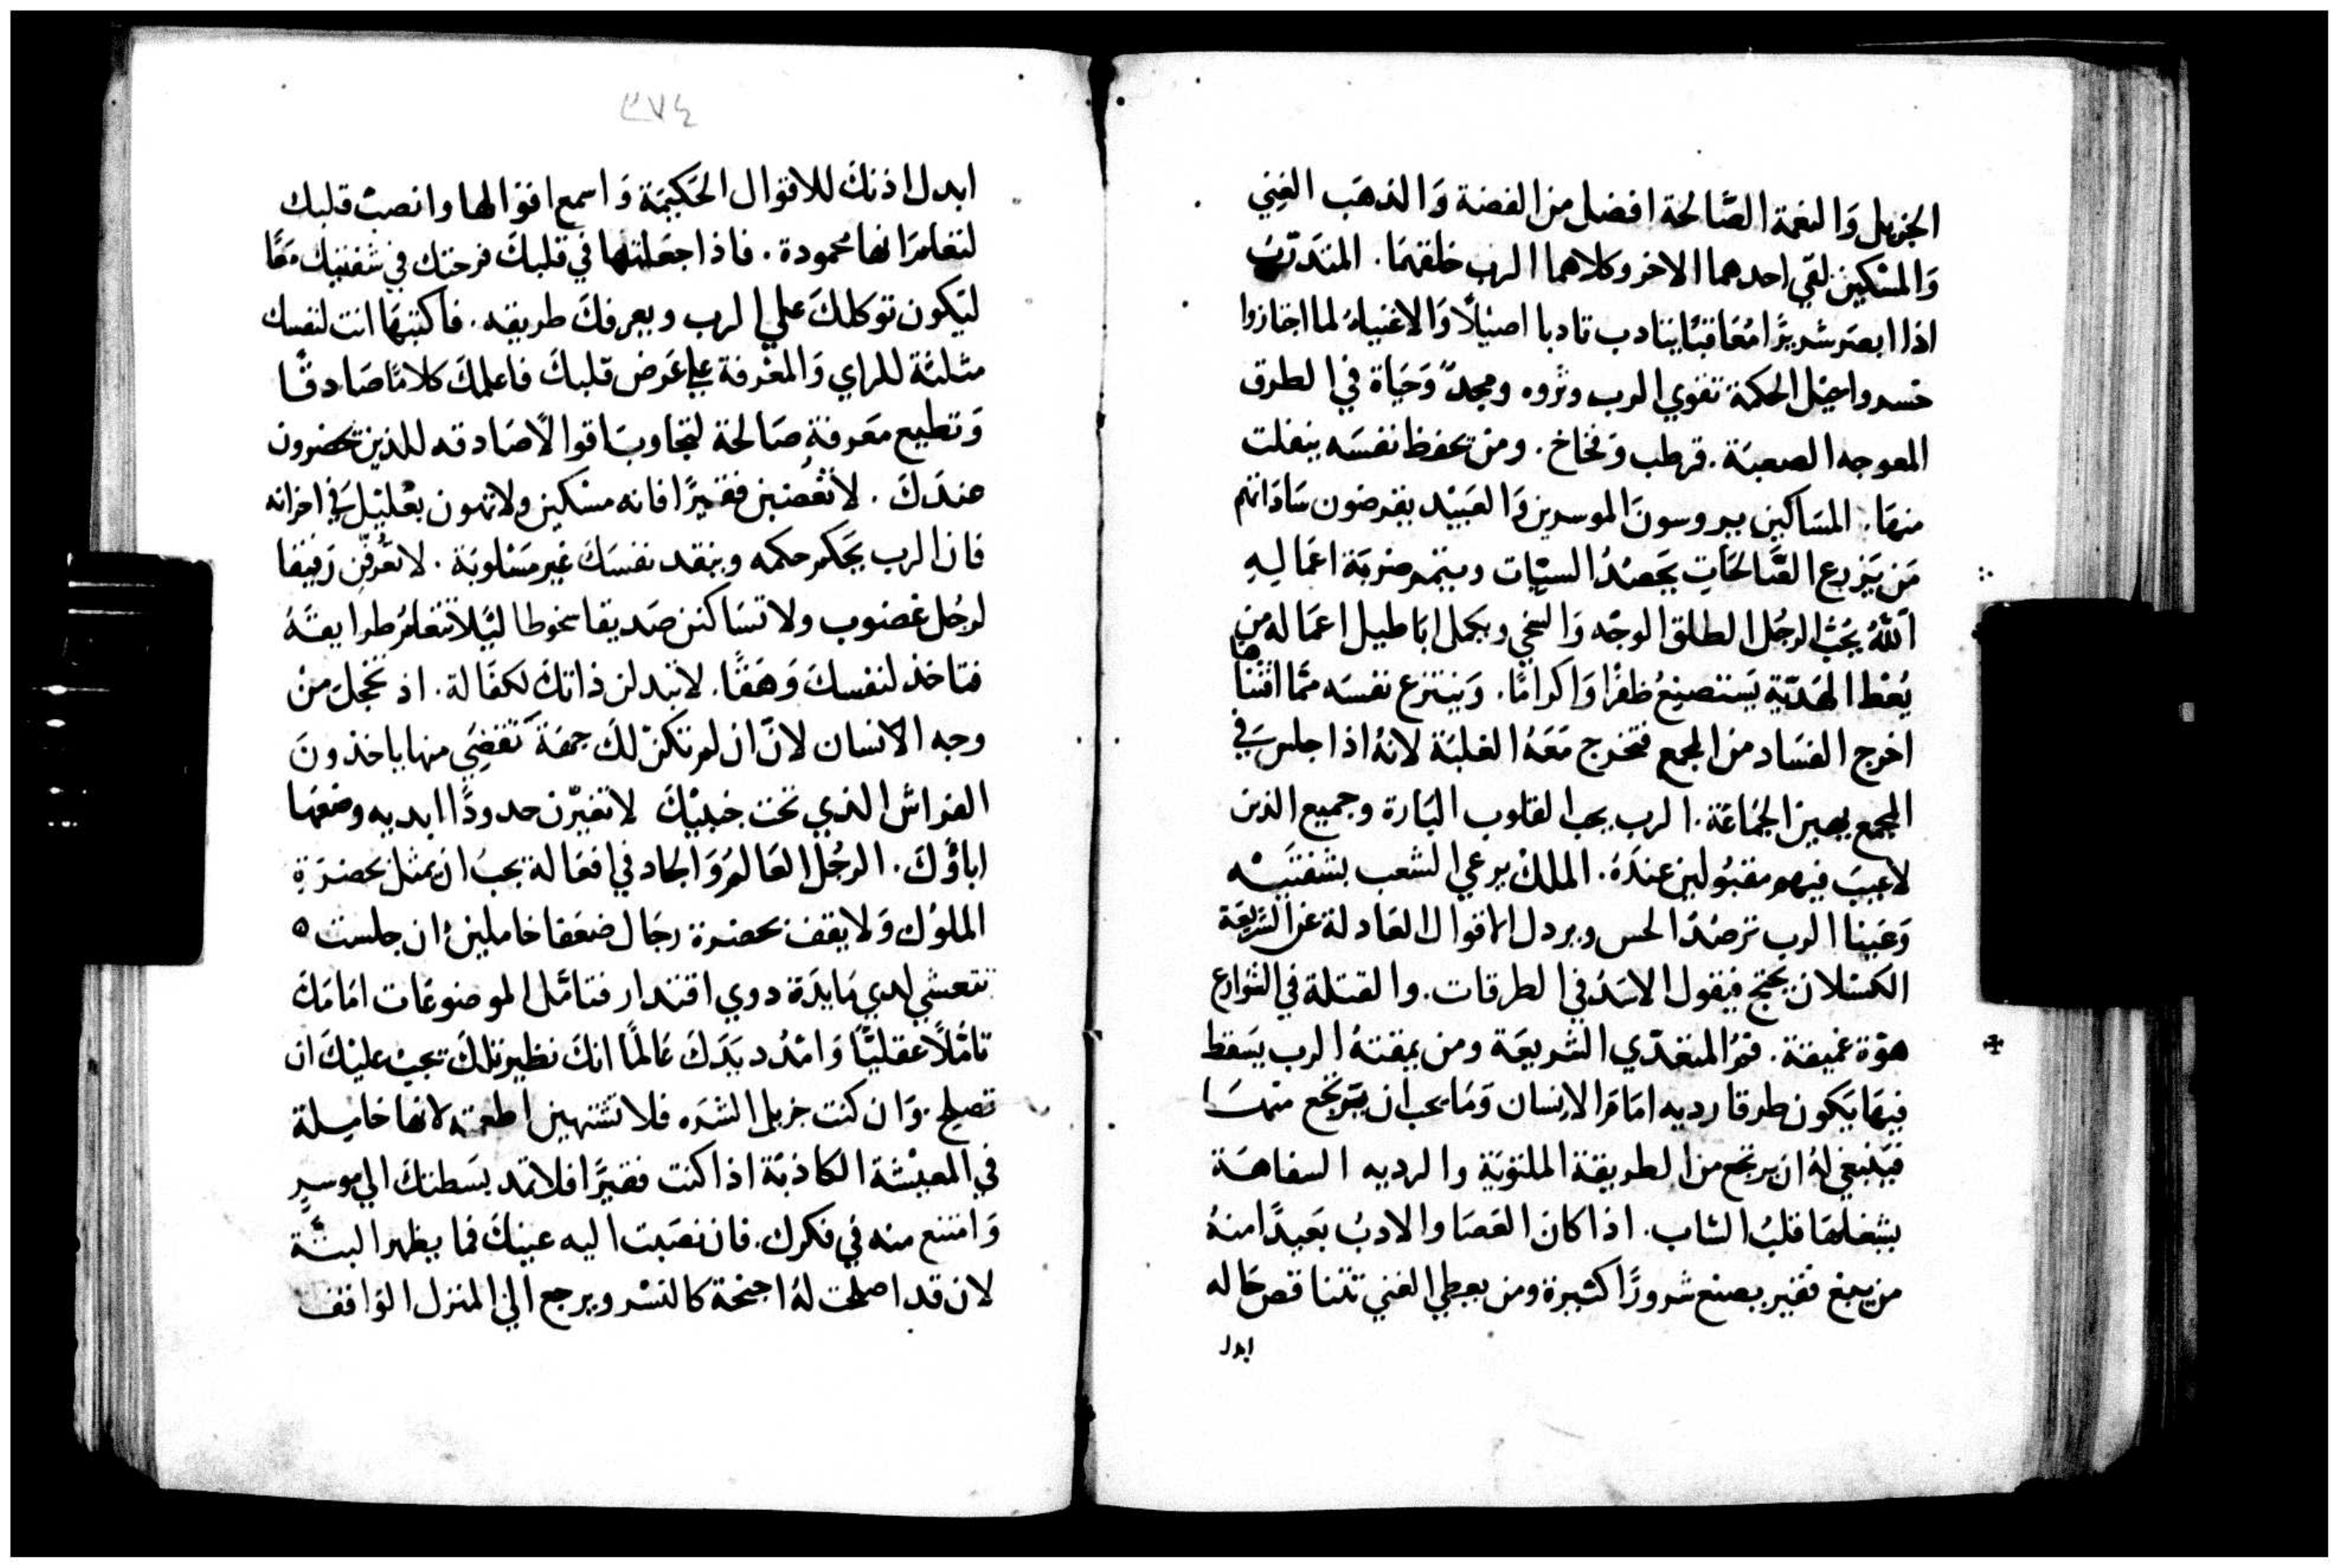 الجزيل وَالنعمة الصَّالحة افضل من الفضة وَالذهَب الغِني
وَالمسْكين لقي احدهما الاخر وكلاهما الرب خلقهمَا. المتدَرّبُ
اذا ابصَر شريرًا مُعَاقبًا يتادب تادبا اصيلاً وَالاغنياءُ لما اجتازوا
خسروا جيل الحكمة تقوي الرب وثروه ومجدٌ وَحيَاة في الطرق
المعوجه الصعبَة. قرطب وَفخاخ. ومن يحفظ نفسَه ينفلت
منهَا. المسَاكين يروسونَ الموسرين وَالعَبيْد يقرضون سَادَاتهم
مَن يَزرع الصَّالحَاتِ يَحصدُ السيّات ويتمم ضربَة اعمَاليهِ
اَللَّهُ يُحبُّ الرجُل الطلق الوجْه وَالسَخي ويكمل ابَاطيل اعمَاله من
يُعْط الهَديّة يَستصنِعُ ظفرًا وَاكرامًا. وَينتزع نفسَه ممَّا اقتناها
اخرج الفسَاد من المجمع فتخرج مَعَهُ الغلبَة لانهُ اذا جلسَ في
المجمع يهين الجمَاعَة. الرب يحب القلوب البَارة وجميع الذين
لا عَيبَ فيهم مقبُولين عندَهُ. الملكْ يرعي الشعب بشفتَيْه
وَعَينا الرب ترصدْ الحس ويردل الاقوال العَادلة عن الشريعَة
الكسْلان يحتج فيقول الاسَدُ في الطرقات. والقتلة في الشوارع
هوّة عميقة. فمُ المتعدّي الشريعَة ومن يمقتهُ الرب يسَقط
فيهَا يَكون طرقا رديه امَامَ الانِسان وَمَا يحب ان يَرتجع منهَا
فيَنبغي لهُ ان يرتجع من الطريقة الملتويَة والرديه السفاهَة
يشغلهَا قلبُ الشاب. اذا كان العَصَا والادبُ بعَيدًا منهُ
من يبغ فقير يصنع شرورًا كثيرة ومن يعطي الغني تتناقص حَاله
ابدل
٣٧٤
ابدل اذنكَ للاقوال الحَكيمَة وَاسمع اقوالها وانصبْ قلبك
لتعلمَ انها محمودة. فاذا جعَلتهَا في قلبكَ فرحتك في شفتيك مَعًا
ليَكون توكلكَ علي الرب ويعرفكَ طريقه. فاكتبهَا انت لنفسك
مثلثة للراي وَالمعْرفة علي عَرض قلبكَ فاعلمكَ كلامًا صَادقًا
وَتطيع معَرفةٍ صَالحة لتجاوبَ اقوالاً صَادقه للذين يحضرون
عندَكَ. لا تغْصُبن فقيرًا فانه مسْكين ولا تهون بعْليْل في اخزانه
فان الرب يَحكم حكمه وينقد نفسَكَ غير مَسْلوبَة. لا تعُرفّن رَفيقا
لرجُل غضوب ولا تسَاكنن صَديقا سخوطا ليَلا تتعَلمُ طرايقهُ
فتاخذ لنفسكَ وَهَقًا. لا تبدلن ذاتكَ لكفَالة. اذ تخجل منْ
وجه الانسان لانّ ان لم تكنْ لكَ جهَة تَقضِي منها ياخذونَ
الفراش الذي تحت جنبيْكَ لا تغيّرن حدودًا ابديه وضعَها
اباؤكَ. الرجُل العَالمُ وَالجاد في افعَاله يجبُ ان يمثل بحضرَةِ
الملوُك وَلا يقف بحضرة رجَال ضعَفا خاملين ان جلست ه
تتعشي لدي مَايدَة دوي اقتدار فتامَّل الموضوعَات امَامَكَ
تامُّلاً عقليًّا وَامْدُد يَدَكَ عَالمًا انكَ نظير تلكَ يجبْ عليْكَ ان
تصلح. وَان كنت جزيل الشرَه فلا تشتهين اطعمته لانهَا خاملة
في المعيْشة الكاذبَة اذا كنت فقيرًا فلا تمد بسَطتكَ الي موسرٍ
وَامتنع منه في فكرك. فان نصَبت اليه عينيكَ فما يظهر البتَّة
لان قد اصلحت لهُ اجنحة كالنسْر ويرجع الي المنزل الوَاقف